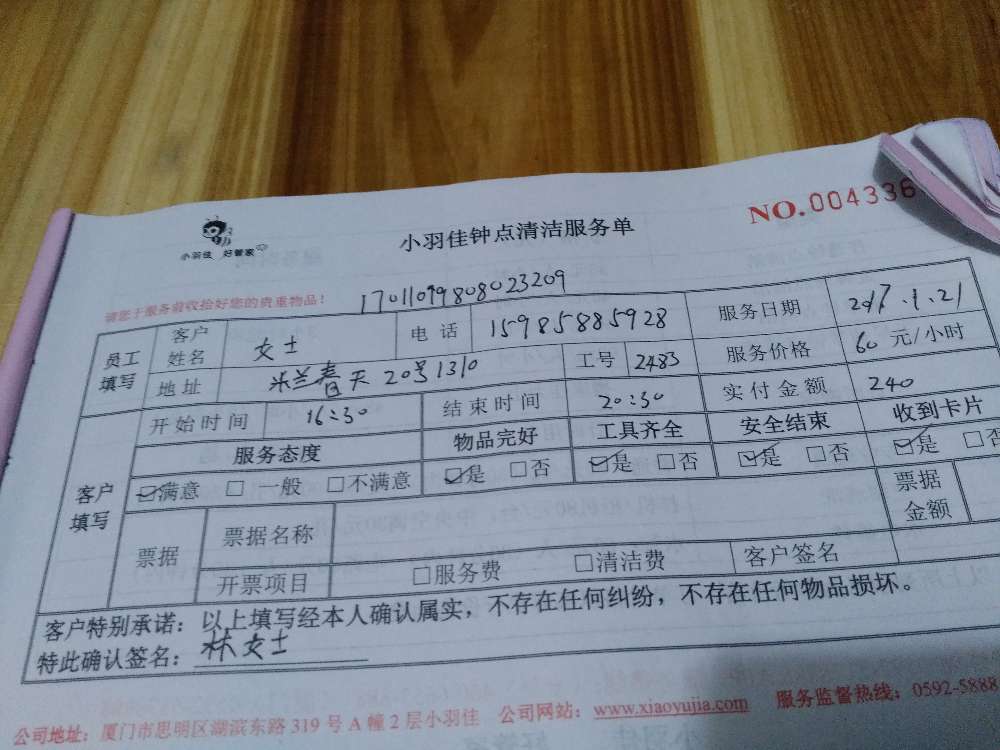 小羽佳 好管家
小羽佳钟点清洁服务单
NO.004336
请您于服务前收拾好您的贵重物品！
17011099808023209
员工填写 客户姓名 女士 电话 15985885928 服务日期 2017.1.21
地址 米兰春天20号1310 工号 2483 服务价格 60 元/小时
客户填写 开始时间 16:30 结束时间 20:30 实付金额 240
服务态度 物品完好 工具齐全 安全结束 收到卡片
☑满意 □一般 □不满意 ☑是 □否 ☑是 □否 ☑是 □否 ☑是 □否
票据 票据名称 票据金额
开票项目 □服务费 □清洁费 客户签名
客户特别承诺：以上填写经本人确认属实，不存在任何纠纷，不存在任何物品损坏。
特此确认签名：林女士
公司地址：厦门市思明区湖滨东路 319 号 A 幢 2 层小羽佳 公司网站：www.xiaoyujia.com 服务监督热线：0592-5888